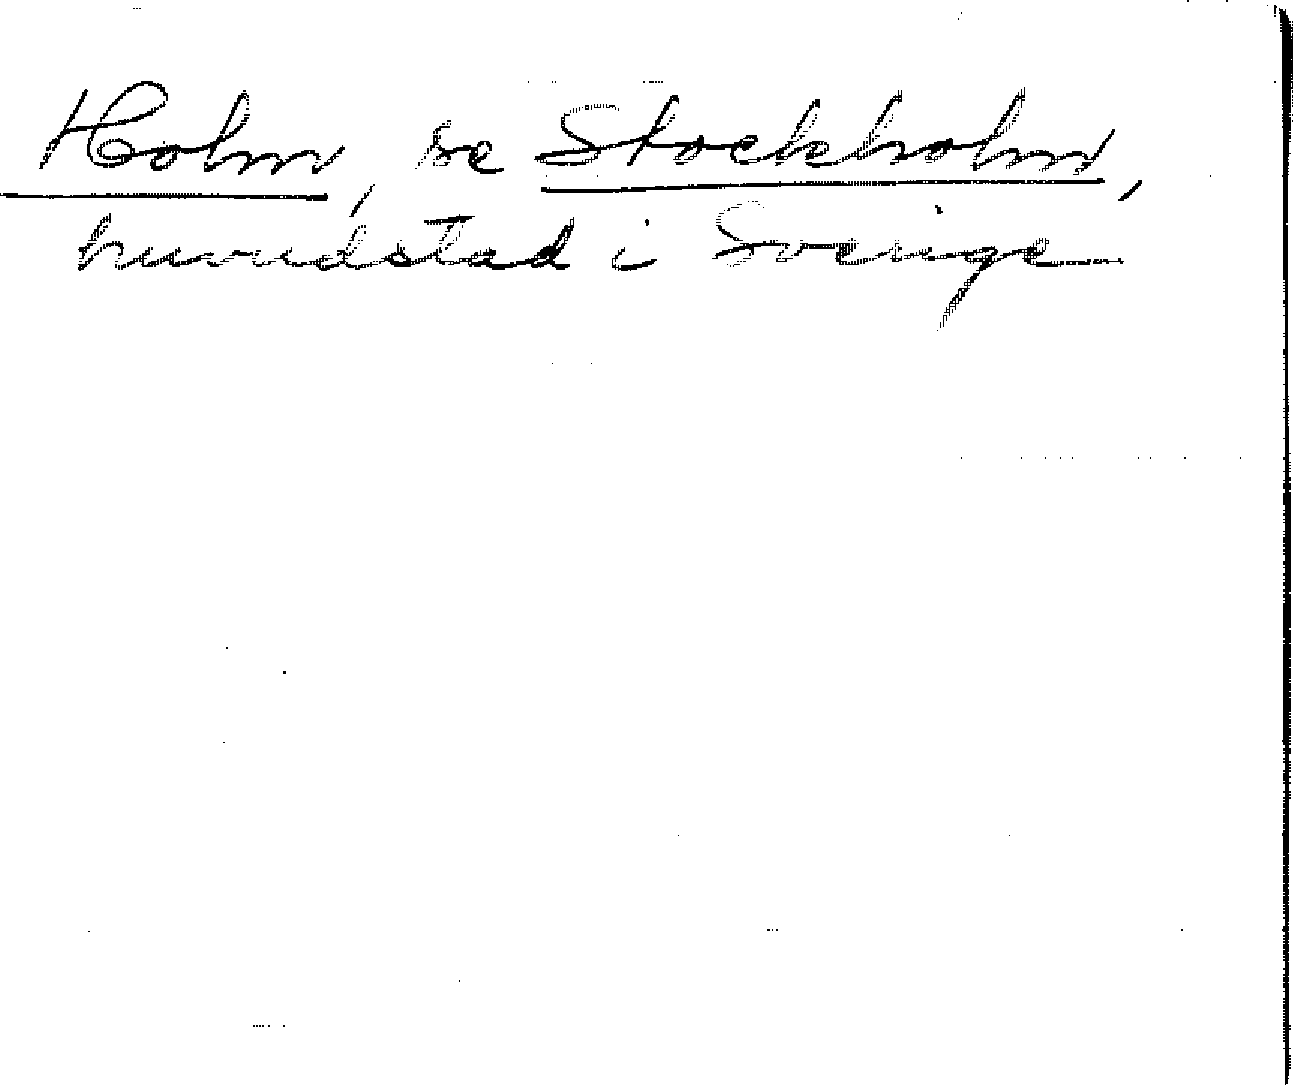 Holm, se Stockholm,
huvudstad i Sverige